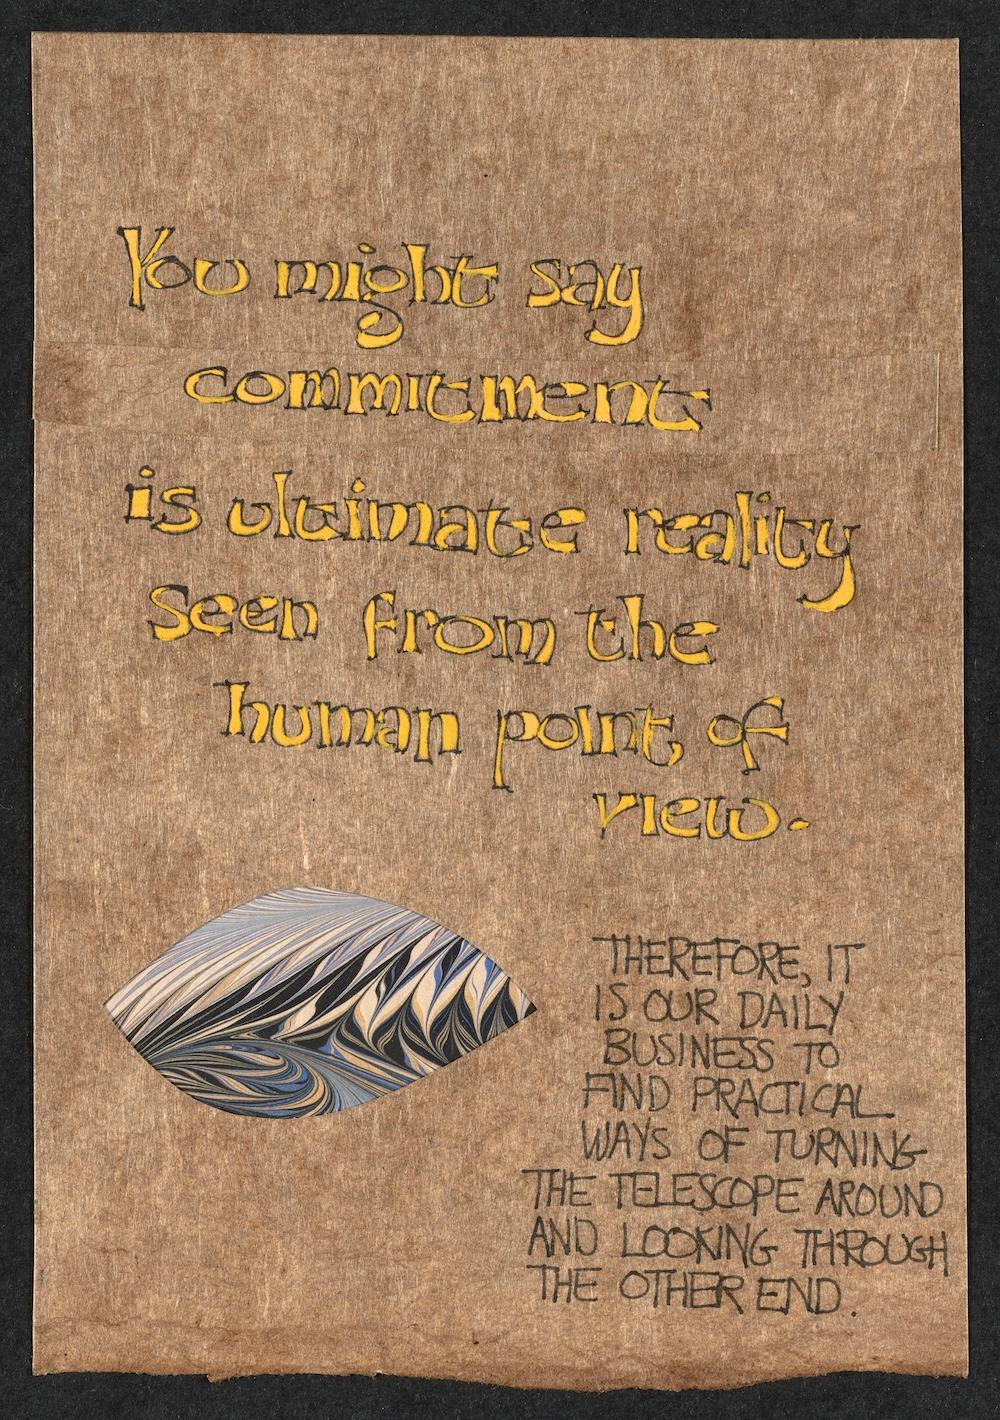 You might say
commitment
is ultimate reality
seen from the
human point of
view.
THEREFORE, IT
IS OUR DAILY
BUSINESS TO
FIND PRACTICAL
WAYS OF TURNING
THE TELESCOPE AROUND
AND LOOKING THROUGH
THE OTHER END.